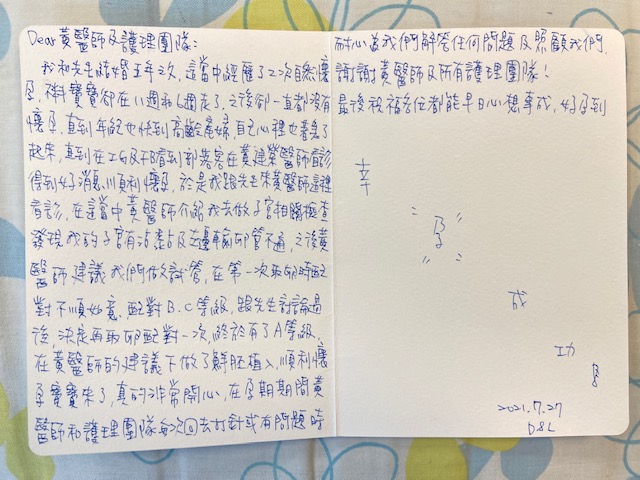 Dear 黃醫師及護理團隊:
我和先生結婚五年之久,這當中經歷了2次自然懷
孕,不料寶寶卻在11週和6週走了,之後卻一直都沒有
懷孕,直到年紀也快到高齡產婦,自己心裡也著急了
起來,直到在IG及FB看到部落客在黃建榮醫師看診
得到好消息,順利懷孕,於是我跟先生來黃醫師這裡
看診,在這當中黃醫師介紹我去做子宮相關檢查
發現我的子宮有沾黏及左邊輸卵管不通,之後黃
醫師建議我們做試管,在第一次取卵時配
對不順如意,配對B.C等級,跟先生討論過
後,決定再取卵配對一次,終於有了A等級,
在黃醫師的建議下做了鮮胚植入,順利懷
孕寶寶來了,真的非常開心,在孕期期間黃
醫師和護理團隊每次回去打針或有問題時
耐心為我們解答任何問題及照顧我們,
謝謝黃醫師及所有護理團隊!
最後祝福各位都能早日心想事成,好孕到
幸
"孕"
成
功
2021.7.27
D&L